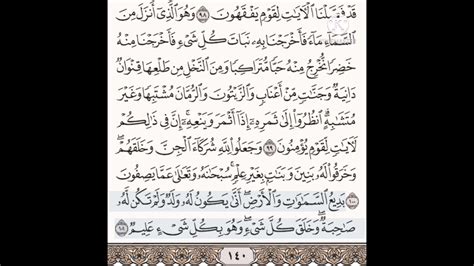 قَدْ فَصَّلْنَا ٱلْأٓيَٰتِ لِقَوْمٍ يَفْقَهُونَ ٩٨ وَهُوَ ٱلَّذِىٓ أَنزَلَ مِنَ
ٱلسَّمَآءِ مَآءً فَأَخْرَجْنَا بِهِۦ نَبَاتَ كُلِّ شَىْءٍ فَأَخْرَجْنَا مِنْهُ
خَضِرًا نُّخْرِجُ مِنْهُ حَبًّا مُّتَرَاكِبًا وَمِنَ ٱلنَّخْلِ مِن طَلْعِهَا قِنْوَانٌ
دَانِيَةٌ وَجَنَّٰتٍ مِّنْ أَعْنَابٍ وَٱلزَّيْتُونَ وَٱلرُّمَّانَ مُشْتَبِهًا وَغَيْرَ
مُتَشَٰبِهٍ ٱنظُرُوٓا۟ إِلَىٰ ثَمَرِهِۦٓ إِذَآ أَثْمَرَ وَيَنْعِهِۦٓ إِنَّ فِى ذَٰلِكُمْ
لَأٓيَٰتٍ لِّقَوْمٍ يُؤْمِنُونَ ٩٩ وَجَعَلُوا۟ لِلَّهِ شُرَكَآءَ ٱلْجِنَّ وَخَلَقَهُمْ
وَخَرَقُوا۟ لَهُۥ بَنِينَ وَبَنَٰتٍۭ بِغَيْرِ عِلْمٍ سُبْحَٰنَهُۥ وَتَعَٰلَىٰ عَمَّا يَصِفُونَ
١٠٠ بَدِيعُ ٱلسَّمَٰوَٰتِ وَٱلْأَرْضِ أَنَّىٰ يَكُونُ لَهُۥ وَلَدٌ وَلَمْ تَكُن لَّهُۥ
صَٰحِبَةٌ وَخَلَقَ كُلَّ شَىْءٍ وَهُوَ بِكُلِّ شَىْءٍ عَلِيمٌ
١٤٠